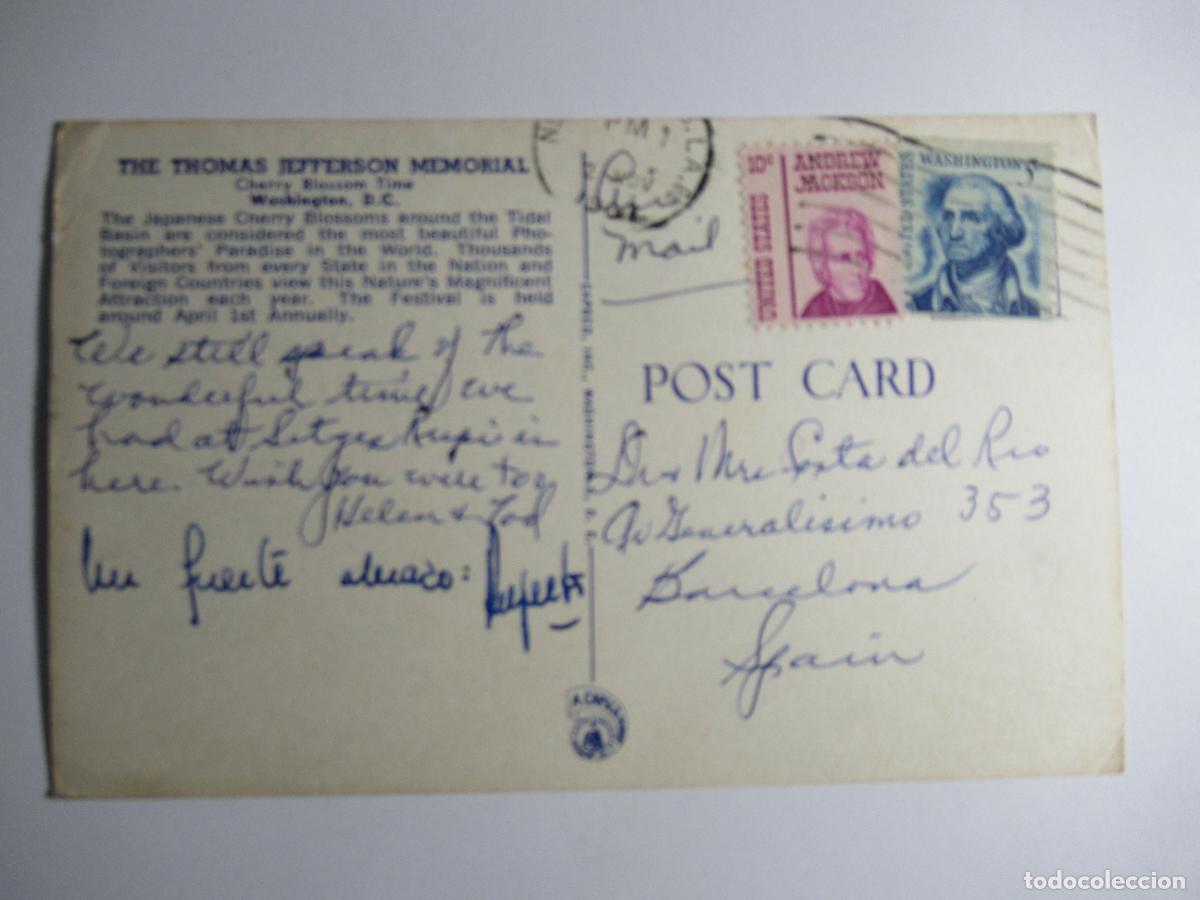 THE THOMAS JEFFERSON MEMORIAL
Cherry Blossom Time
Washington, D.C.
The Japanese Cherry Blossoms around the Tidal
Basin are considered the most beautiful Pho-
tographers' Paradise in the World. Thousands
of Visitors from every State in the Nation and
Foreign Countries view this Nature's Magnificent
Attraction each year. The Festival is held
around April 1st Annually.
We still speak of the
wonderful time we
had at Sitges is
here. Wish you were too
Helen &
Un fuerte abrazo:
PM
LA.
Air
Mail
10¢
ANDREW
JACKSON
UNITED STATES
WASHINGTON 5¢
UNITED STATES
POST CARD
Mrs Costa del Rio
Av Generalisimo 353
Barcelona
Spain
CAPSCO, INC., WASHINGTON, D. C.
todocoleccion